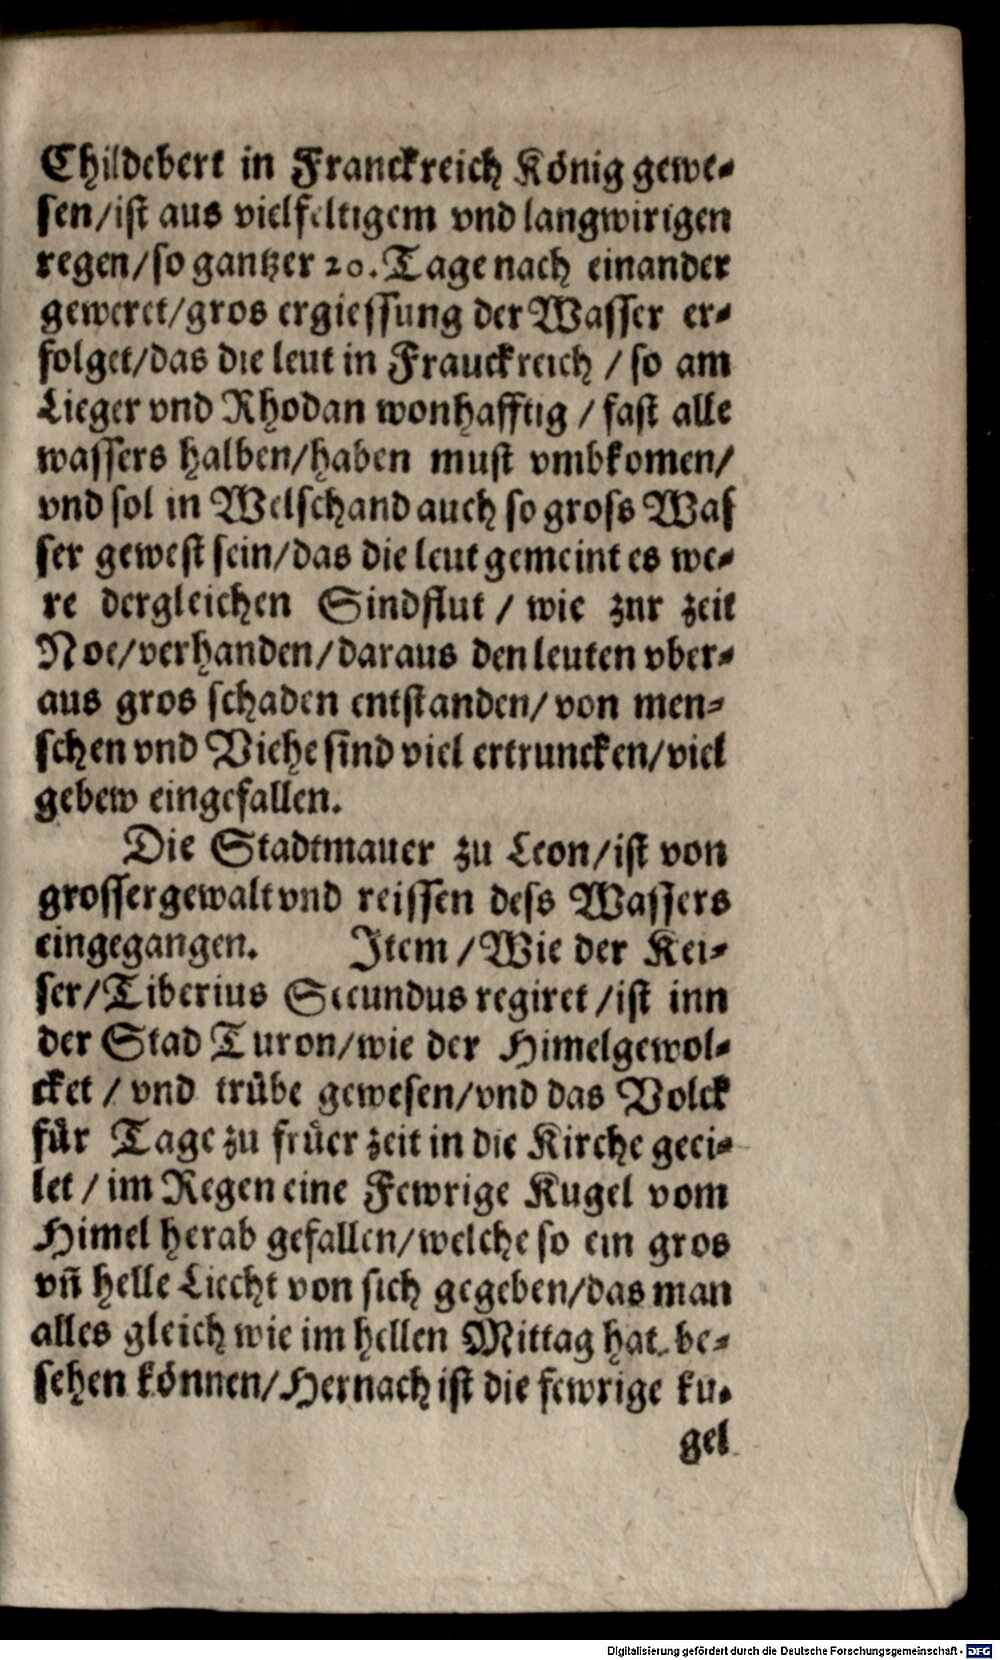 Childebert in Franckreich König gewe-
sen/ist aus vielfeltigem vnd langwirigen
regen/so gantzer 20. Tage nach einander
geweret/gros ergiessung der Wasser er-
folget/das die leut in Frauckreich / so am
Lieger vnd Rhodan wonhafftig / fast alle
wassers halben/haben must vmbkomen/
vnd sol in Welschand auch so gross Was
ser gewest sein/das die leut gemeint es we-
re dergleichen Sindflut / wie znr zeit
Noe/verhanden/daraus den leuten vber-
aus gros schaden entstanden/von men-
schen vnd Viehe sind viel ertruncken/viel
gebew eingefallen.
Die Stadtmauer zu Leon/ist von
grosser gewalt vnd reissen dess Wassers
eingegangen. Item / Wie der Kei-
ser/Tiberius Secundus regiret /ist inn
der Stad Turon/wie der Himelgewol-
cket / vnd trübe gewesen/vnd das Volck
für Tage zu früer zeit in die Kirche geei-
let / im Regen eine Fewrige Kugel vom
Himel herab gefallen/welche so ein gros
vn̄ helle Liecht von sich gegeben/das man
alles gleich wie im hellen Mittag hat be-
sehen können/Hernach ist die fewrige ku-
gel
Digitalisierung gefördert durch die Deutsche Forschungsgemeinschaft - DFG